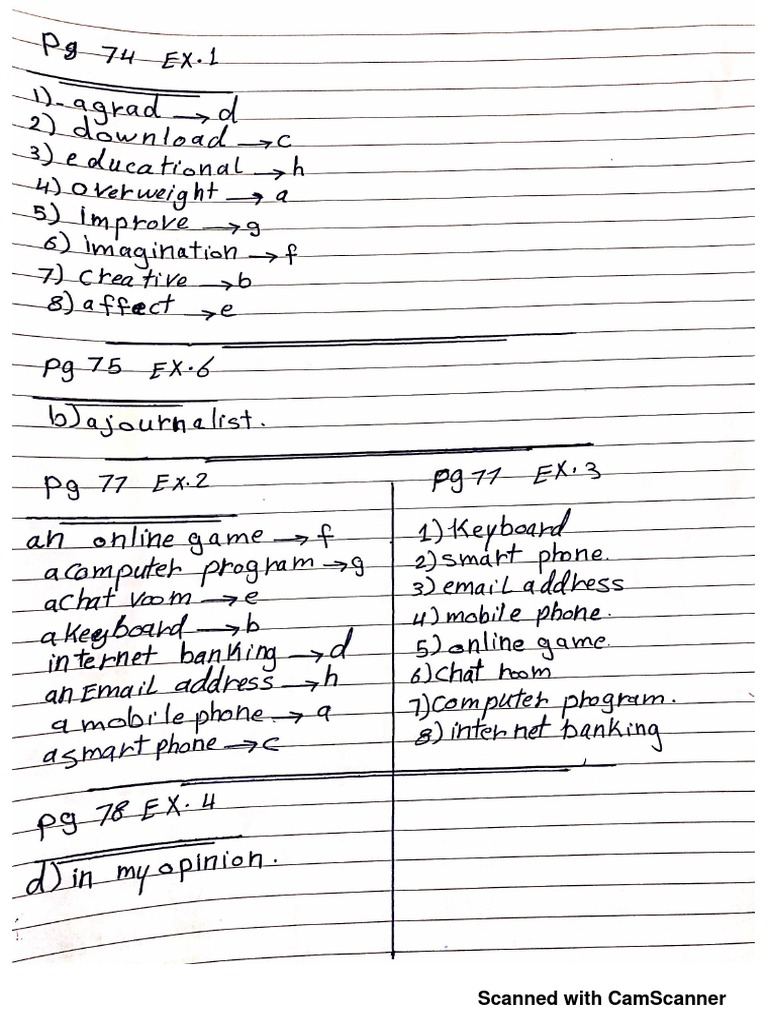 Pg 74 EX.1
1)- agrad → d
2) download → c
3) educational → h
4) overweight → a
5) improve → g
6) imagination → f
7) creative → b
8) affect → e
Pg 75 EX.6
b) a journalist.
Pg 77 EX.2
an online game → f
a computer program → g
a chat room → e
a keyboard → b
internet banking → d
an Email address → h
a mobile phone → a
a smart phone → c
Pg 77 EX.3
1) Keyboard
2) smart phone.
3) email address
4) mobile phone.
5) online game.
6) chat room
7) computer program.
8) internet banking
Pg 78 EX.4
d) in my opinion.
Scanned with CamScanner